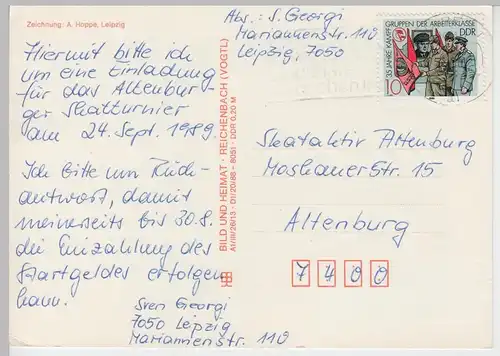 Zeichnung: A. Hoppe, Leipzig
Hiermit bitte ich
um eine Einladung
für das Altenbur-
ger Skatturnier
am 24. Sept. 1989.
Ich bitte um Rück-
antwort, damit
meinerseits bis 30.8.
die Einzahlung des
Startgeldes erfolgen
kann.
Sven Georgi
7050 Leipzig
Mariannenstr. 110
BILD UND HEIMAT · REICHENBACH (VOGTL)
A1/III/26/13 · 01/20/88 - 8051 · DDR 0,20 M
Abs.: S. Georgi
Mariannenstr. 110
Leipzig, 7050
35 JAHRE KAMPFGRUPPEN DER ARBEITERKLASSE
DDR
10
Skataktiv Altenburg
Moskauer Str. 15
Altenburg
7400